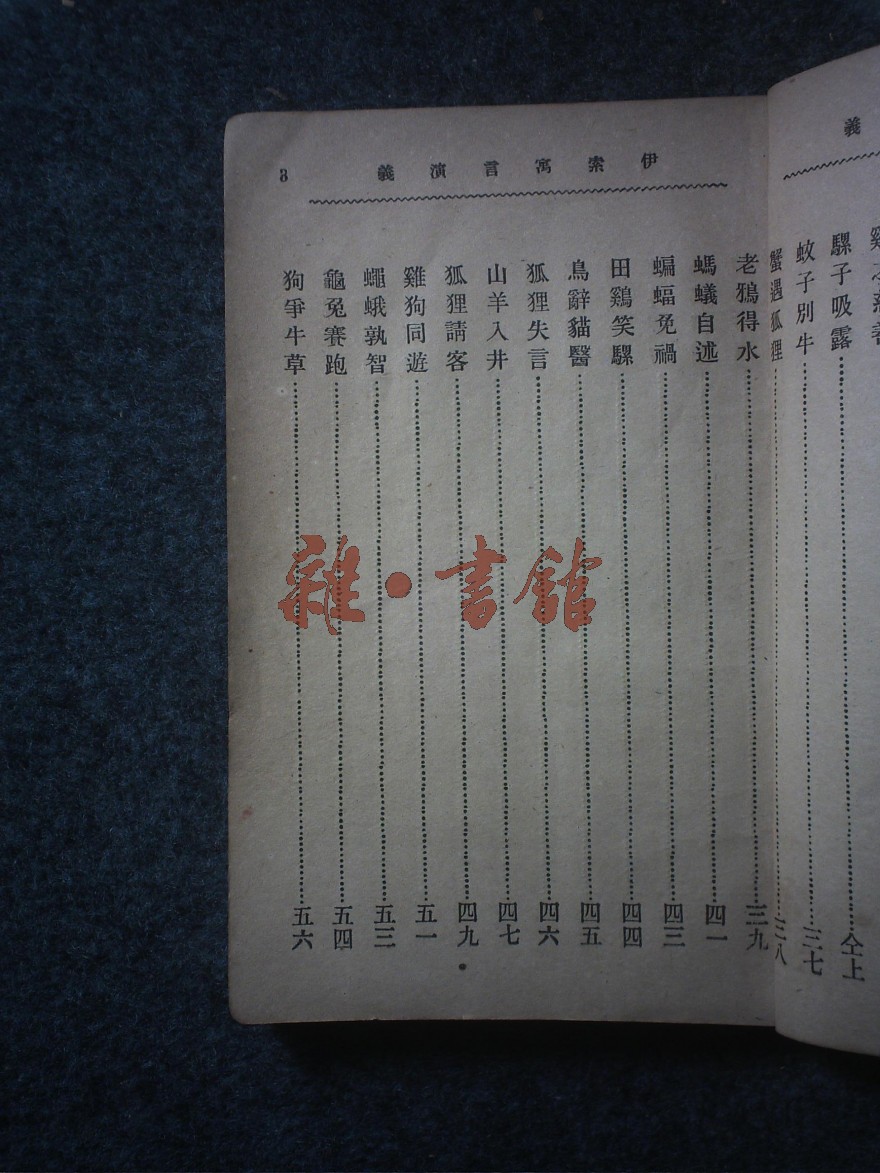 伊索寓言演義
8
老鴉得水……三九
螞蟻自述……四一
蝙蝠免禍……四三
田鷄笑騾……四四
鳥辭貓醫……四五
狐狸失言……四六
山羊入井……四七
狐狸請客……四九
雞狗同遊……五一
蠅蛾孰智……五三
龜兔賽跑……五四
狗爭牛草……五六
義
騾子吸露……仝上
蚊子別牛……三七
蟹遇狐狸……三八
雜·書館